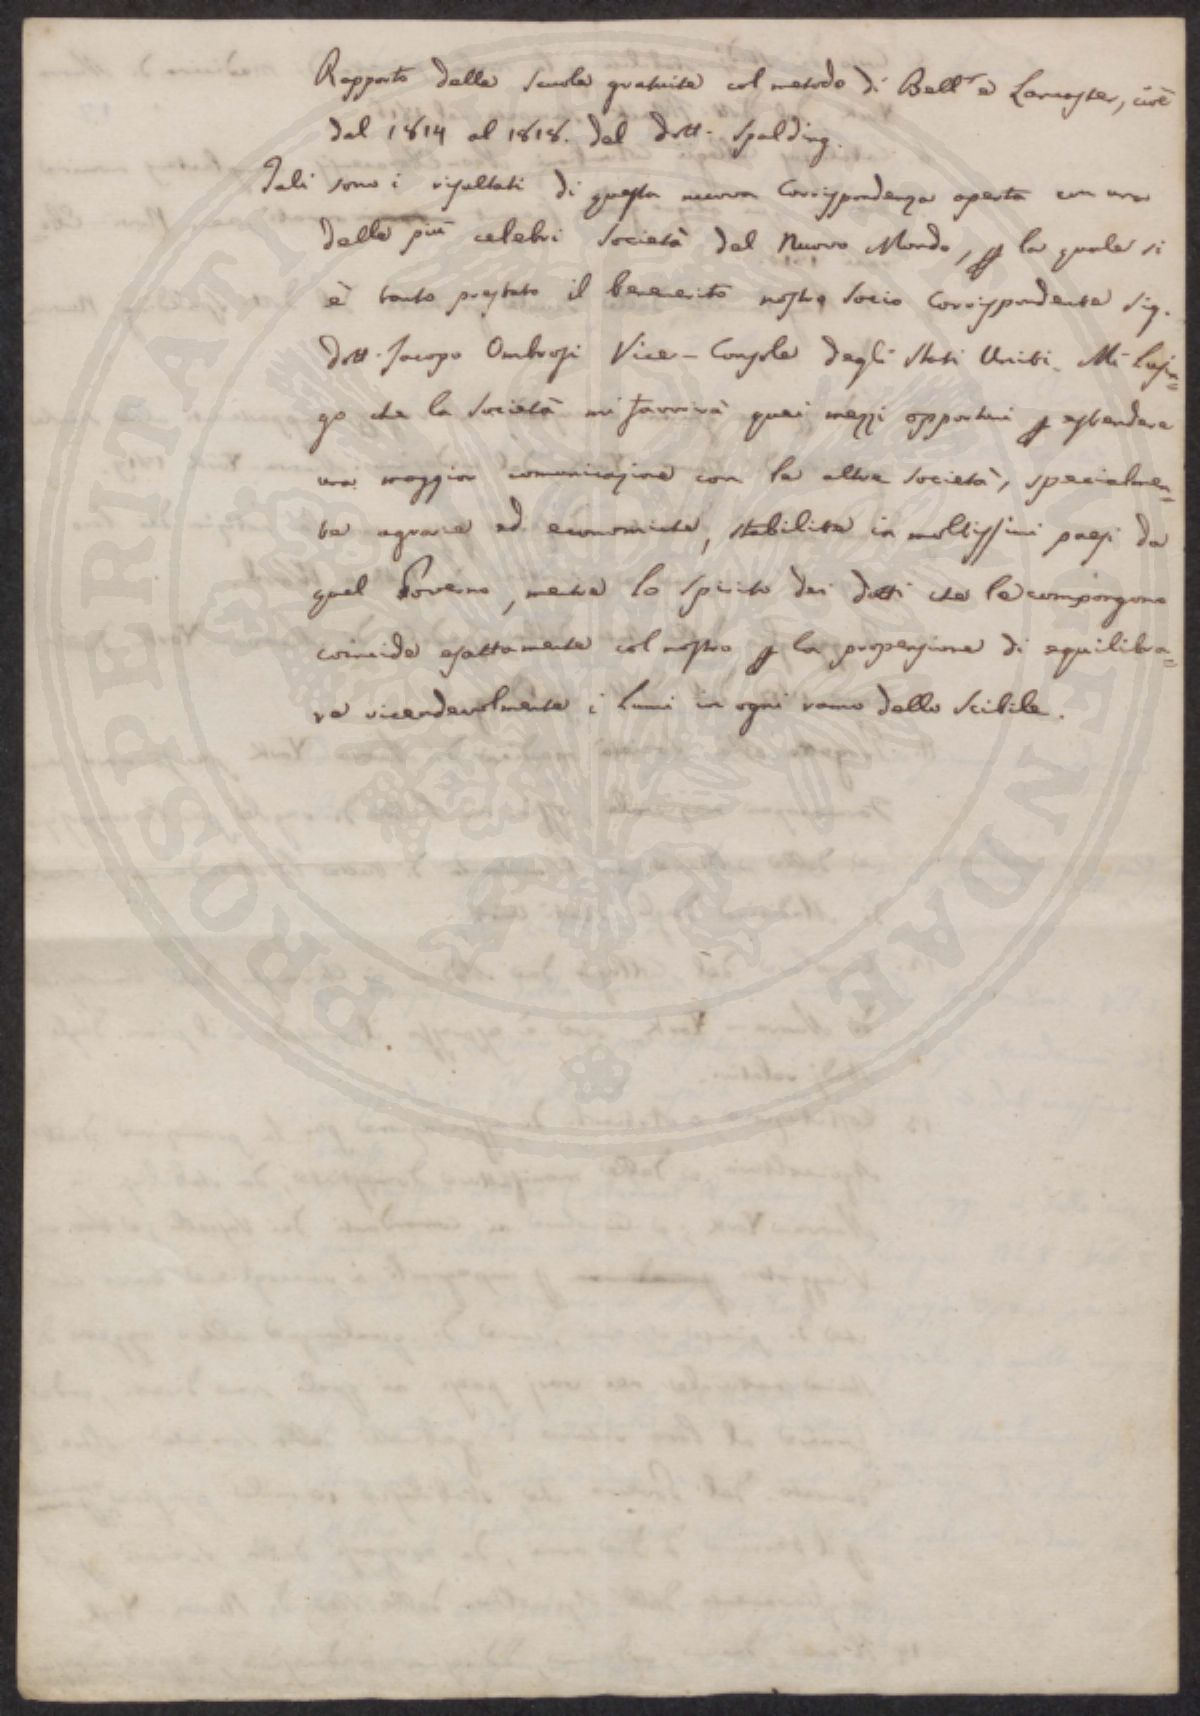 Rapporto delle Scuole gratuite col metodo di Bell e Lancaster, cioè
dal 1814 al 1818. del dott. Spalding.
Tali sono i risultati di questa nuova Corrispondenza aperta con una
delle più celebri Società del Nuovo Mondo, p la quale si
è tanto prestato il benemerito nostro Socio Corrispondente Sig.
dott. Jacopo Ombrosi Vice-Console degli Stati Uniti. Mi lusin=
go che la Società mi favorirà quei mezzi opportuni p estendere
una maggior comunicazione con le altre Società, specialmen=
te agrarie ed economiche, stabilite in moltissimi paesi da
quel Governo, mentre lo spirito dei dotti che le compongono
coincide esattamente col nostro p la propensione di equilibra=
re vicendevolmente i lumi in ogni ramo dello Scibile.
PROSPERITATI AUGENDAE